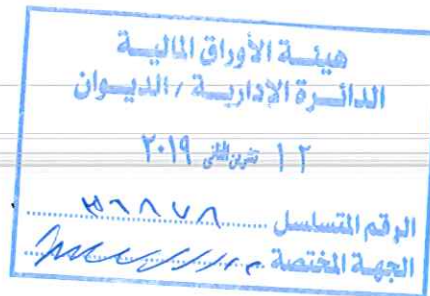 هيئة الأوراق المالية
الدائرة الإدارية / الديوان
١٢ تشرين الثاني ٢٠١٩
الرقم المتسلسل
الجهة المختصة